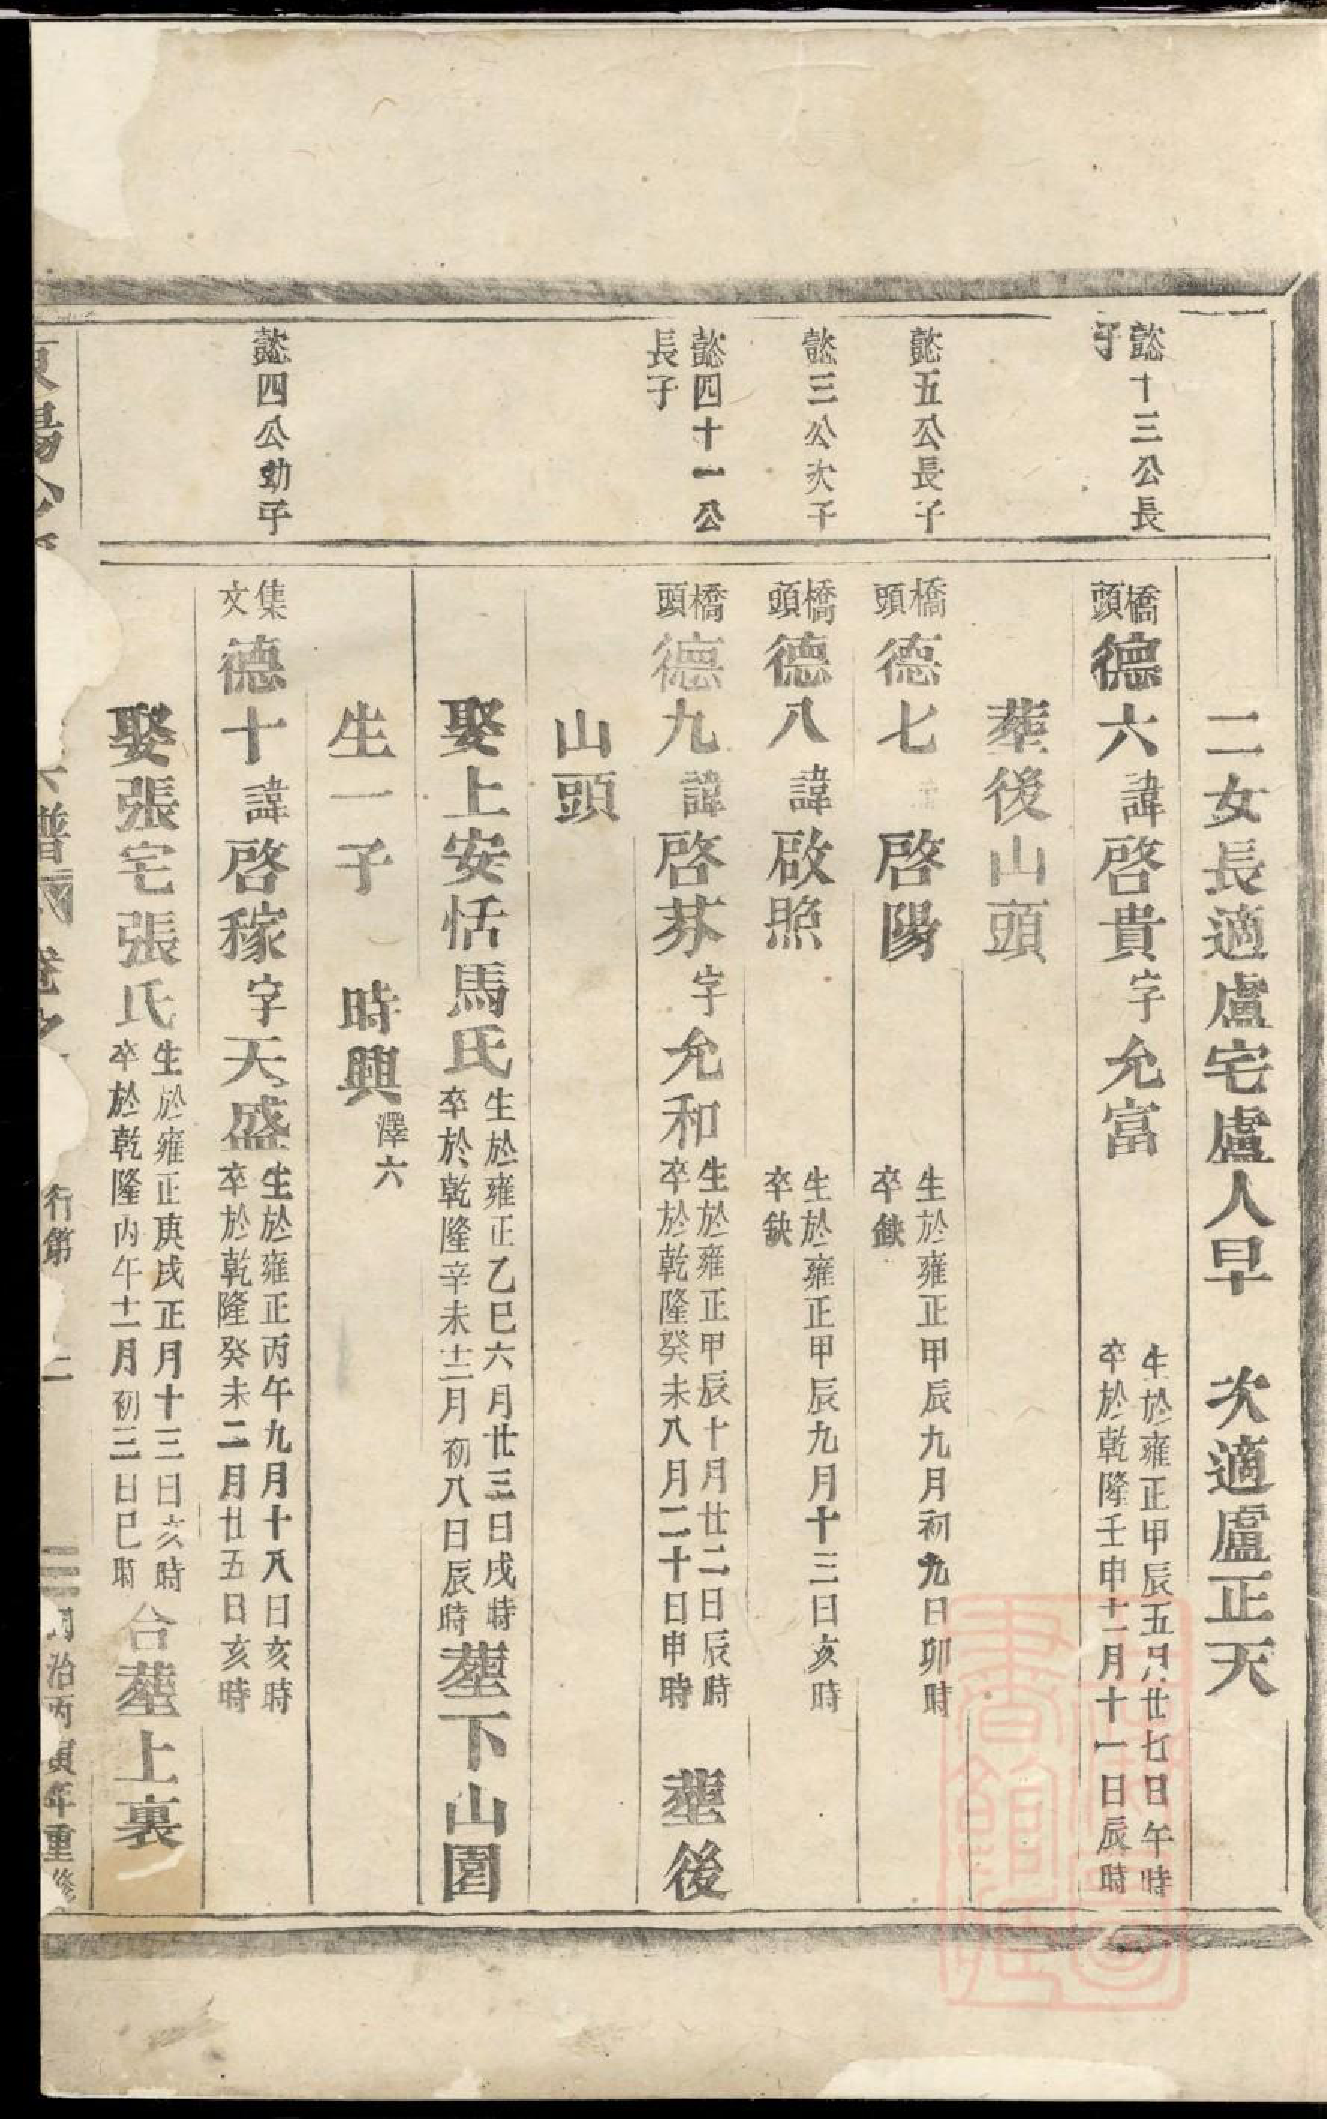 二女長適盧宅盧人早　次適盧正天
懿十三公長
子
橋頭德六諱啓貴字允富
生於雍正甲辰五月廿七日午時
卒於乾隆壬申十一月十一日辰時
葬後山頭
懿五公長子
橋頭德七　啓陽
生於雍正甲辰九月初九日卯時
卒缺
懿三公次子
橋頭德八諱啟照
生於雍正甲辰九月十三日亥時
卒缺
懿四十一公
長子
橋頭德九諱啓芬字允和
生於雍正甲辰十月廿二日辰時
卒於乾隆癸未八月二十日申時
葬後
山頭
娶上安恬馬氏
生於雍正乙巳六月廿三日戌時
卒於乾隆辛未十二月初八日辰時
葬下山園
生一子　時興澤六
懿四公幼子
集文德十諱啓稼字天盛
生於雍正丙午九月十八日亥時
卒於乾隆癸未二月廿五日亥時
娶張宅張氏
生於雍正庚戌正月十三日亥時
卒於乾隆丙午十二月初三日巳時
合葬上裏
行第
同治丙寅年重修